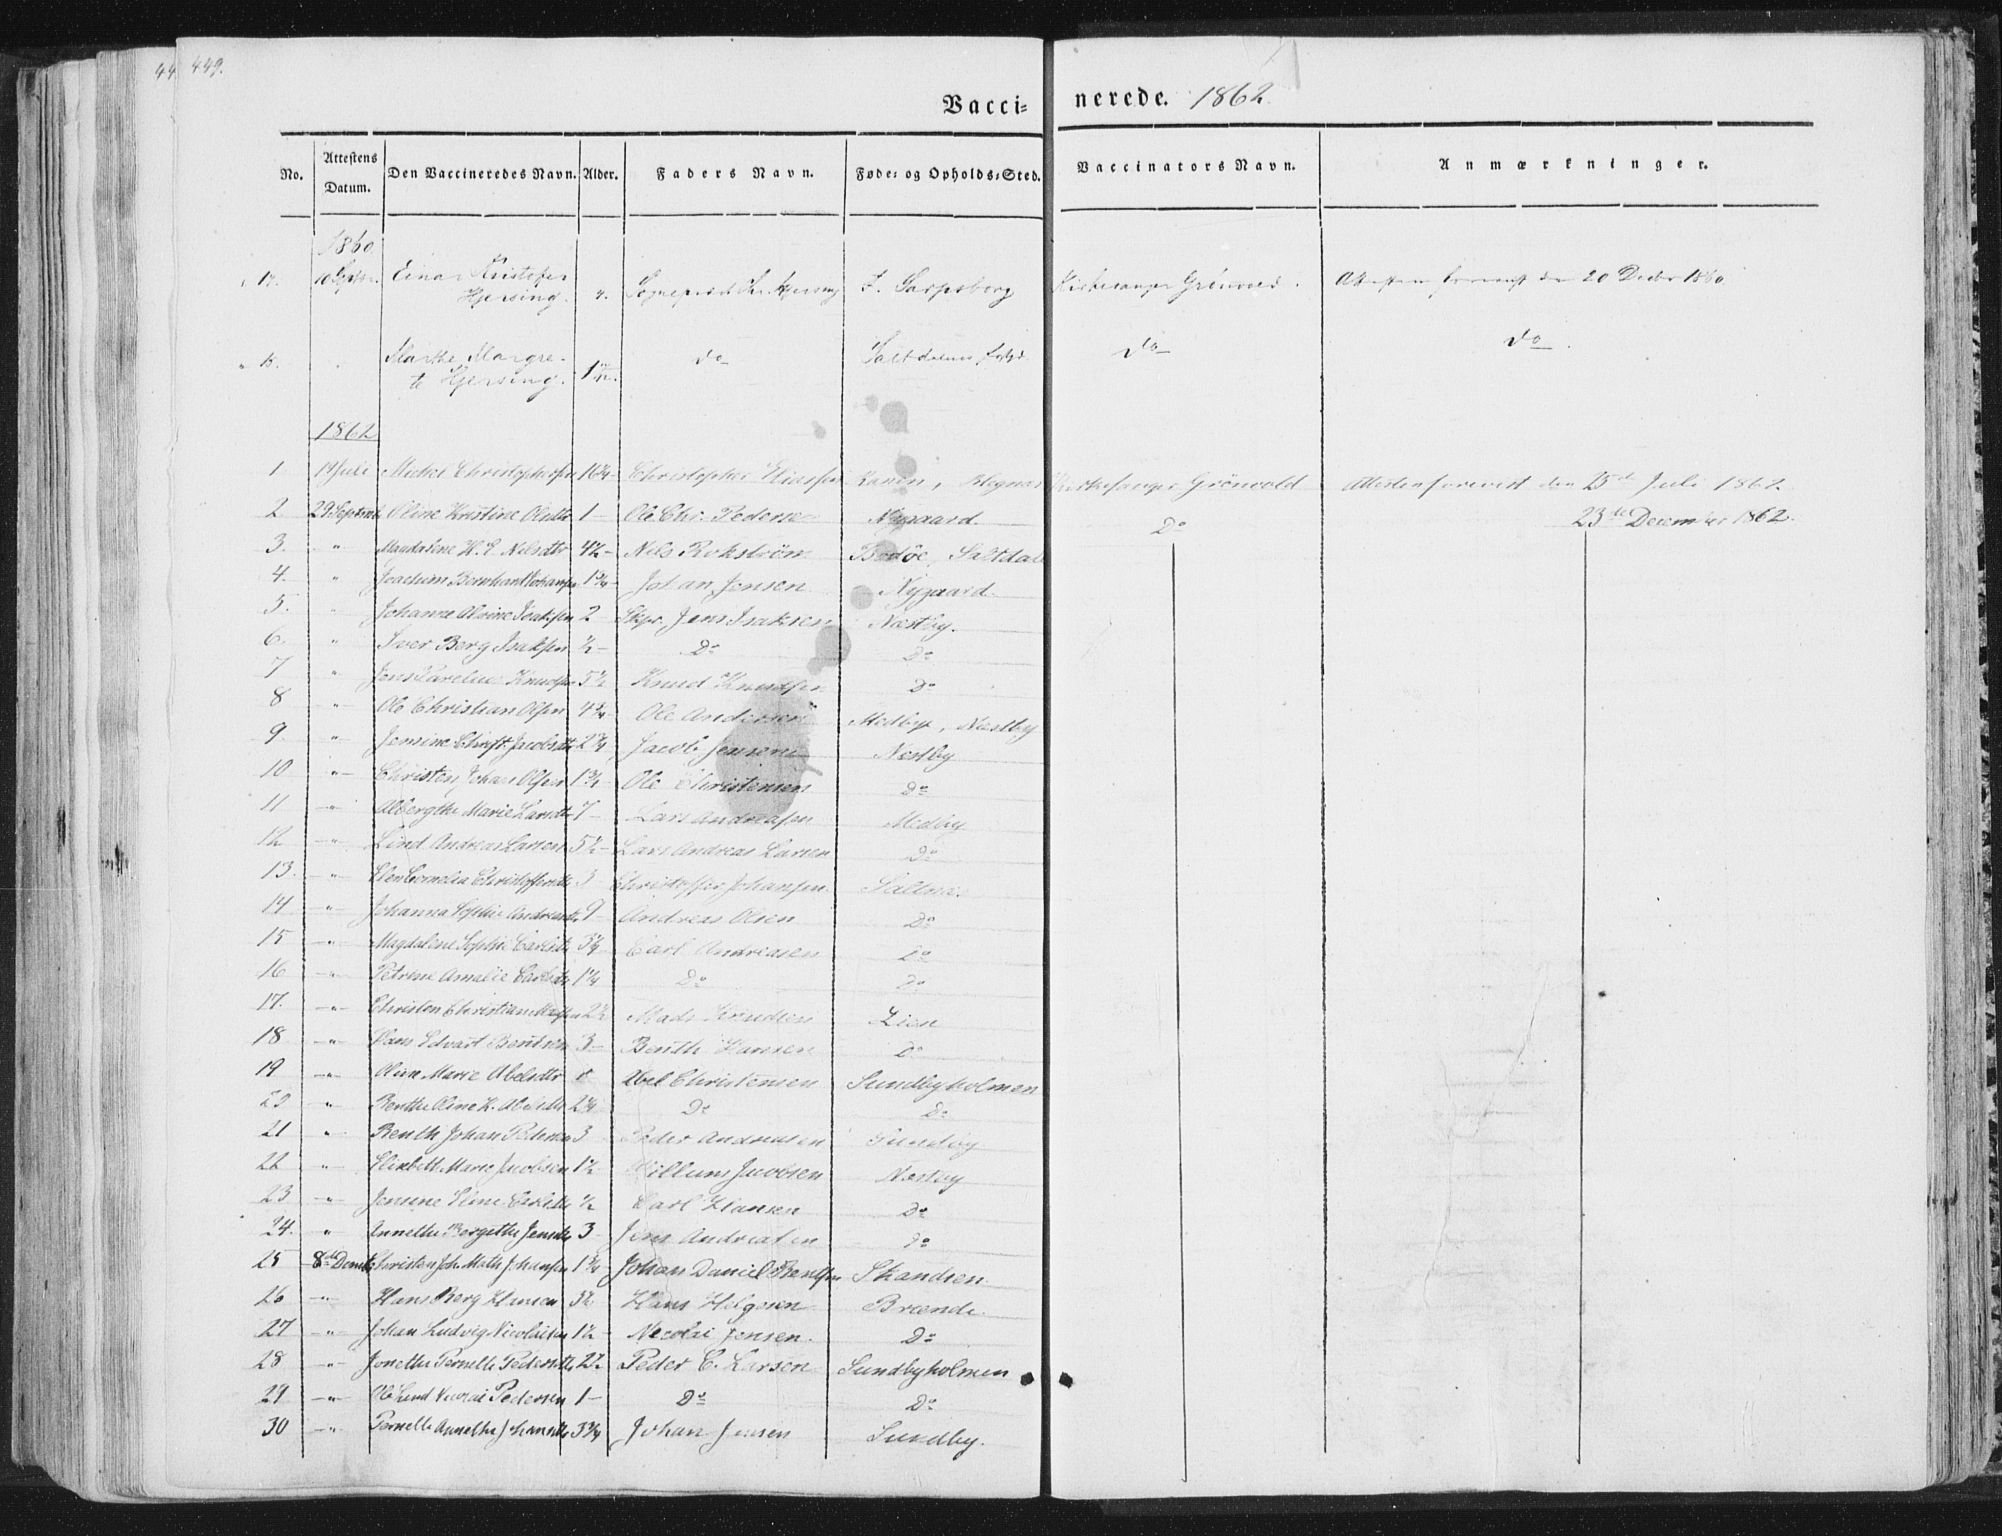 449.
Vacci= nerede. 1862.
No. Attestens Datum. Den Vaccineredes Navn. Alder. Faders Navn. Føde= og Opholds=Sted. Vaccinators Navn. Anmærkninger.
1860
17. 10 Septbr. Einar Kristofer Hjersing. F. Sarpsborg Kirkesanger Grönvold. den 20 Decbr 1860
18. Marthe Margrete Hjersing. Do Do Do
1862
1 Juli Mickel Christophersen Christopher Eliassen Kirkesanger Grönvold Attesten forevist den 25de Juli 1862
2 29 Septemb Oline Kristine Olsdtr 1 – Ole Chr. Pedersen Nygaard. Do 23de December 1862.
3. " Magdalene H. E. Nilsdtr 4½ – Nils Rokström Bodöe, Saltdal
4. " Joachim Bernhard Johansen 1¾ – Johan Jensen Nygaard.
5. " Johanne Alvine Isaksen 2 Skpr. Jens Isaksen Næstby.
6. " Iver Berg Isaksen ½ – Do Do
7 " Knudsen 5½ Knud Knudsen Do
8 " Ole Christian Olsen Ole Andersen Medby, Næstby
9. " Jensine Christ. Jacobsdtr Jacob Jensen Næstby
10 " Christen Johan Olsen 1¾ Ole Christensen Do
11 " Albergthe Marie Larsdtr 7 – Lars Andreasen Medby
12 " Lind Andreas Larsen 5½ – Lars Andreas Larsen Do
13. " Elen Cornelia Christoffersdtr 3 Christoffer Johansen Saltnes
14 " Johanna Sophie Andreasdtr 9 – Andreas Olsen Do
15 " Magdalene Sophie Carlsdtr Carl Andreasen Do
16 " Petrine Amalie Carlsdtr Do Do
17. " Christen Christian Madsen 2½ Mads Knudsen Lien
18 " Hans Edvart Bentsen 3 – Benth Hansen Do
19 " Oline Marie Abelsdtr Abel Christensen Sundbyholmen
20 " Benthe Oline K. Abelsdtr Do Do
21 " Benth Johan Pedersen 3 Peder Andreasen Sundby
22 " Elisbeth Marie Jacobsen 1½ Willum Jacobsen Næstby
23 " Jensine Carlsdtr ½ Carl Hansen Do
24. " Annethe Bergethe Jensdtr 3 Jens Andreasen Do
25 8de Decmb Christen Joh. Math. Johansen 1¾ Johan Daniel Bentsen Skandsen
26 " Hans Berg Hansen 3½ Hans Helgesen Brænde.
27 " Johan Ludvig Nicolaisen 1½ Nicolai Jensen. Do
28 " Jonette Pernelle Pedersdtr 2½ Peder C. Larsen Sundbyholmen
29 " Ole Lind Nicolai Pedersen 1 – Do Do
30 " Pernelle Annethe Johansdtr 3¾ Johan Jensen Sundby.